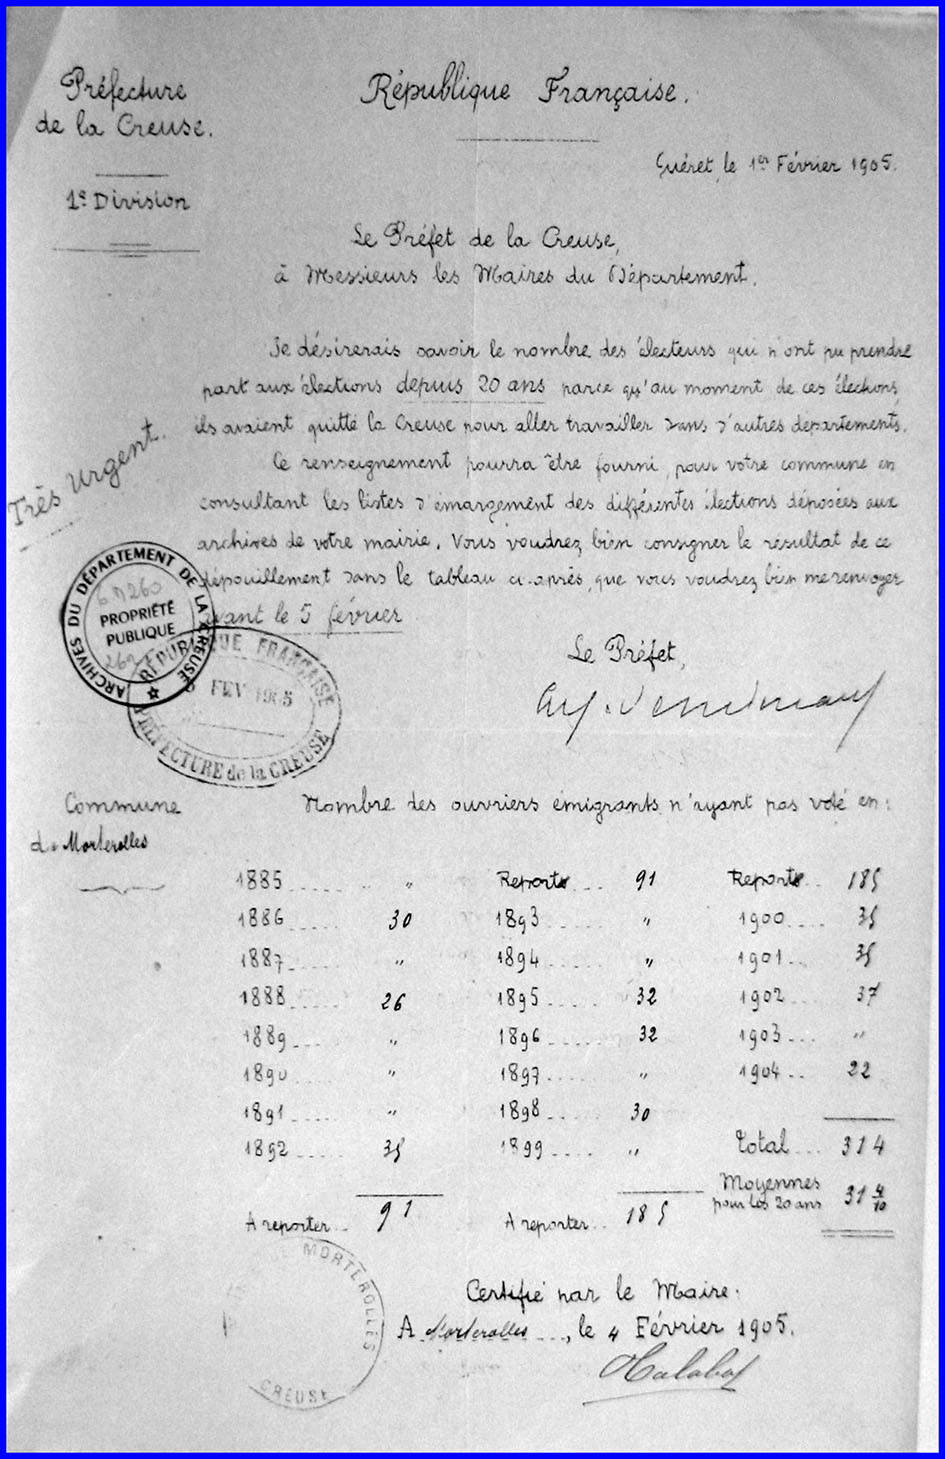 Préfecture
de la Creuse.
1e Division
République Française.
Guéret, le 1er Février 1905.
Le Préfet de la Creuse,
à Messieurs les Maires du Département.
Je désirerais savoir le nombre des électeurs qui n'ont pu prendre
part aux élections depuis 20 ans parce qu'au moment de ces élections,
ils avaient quitté la Creuse pour aller travailler dans d'autres départements.
Très Urgent.
Ce renseignement pourra être fourni, pour votre commune en
consultant les listes d'émargement des différentes élections déposées aux
archives de votre mairie. Vous voudrez bien consigner le résultat de ce
dépouillement dans le tableau ci-après, que vous voudrez bien me renvoyer
avant le 5 février
ARCHIVES DU DÉPARTEMENT DE LA CREUSE
PROPRIÉTÉ
PUBLIQUE
RÉPUBLIQUE FRANÇAISE
FEV 1905
PRÉFECTURE de la CREUSE
Le Préfet,
Commune
de Morterolles
Nombre des ouvriers émigrants n'ayant pas voté en:
1885 ..... "
1886 ..... 30
1887 ..... "
1888 ..... 26
1889 .... "
1890 .... "
1891 .... "
1892 .... 35
A reporter .. 91
Report .. 91
1893 .... "
1894 .... "
1895 .... 32
1896 .... 32
1897 .... "
1898 .... 30
1899 .... "
A reporter .. 185
Report .. 185
1900 .... 35
1901 .. 35
1902 ... 37
1903 ... "
1904 .. 22
Total ... 314
Moyennes
pour les 20 ans 31 4/10
Certifié par le Maire:
A Morterolles, le 4 Février 1905.
MORTEROLLES
CREUSE